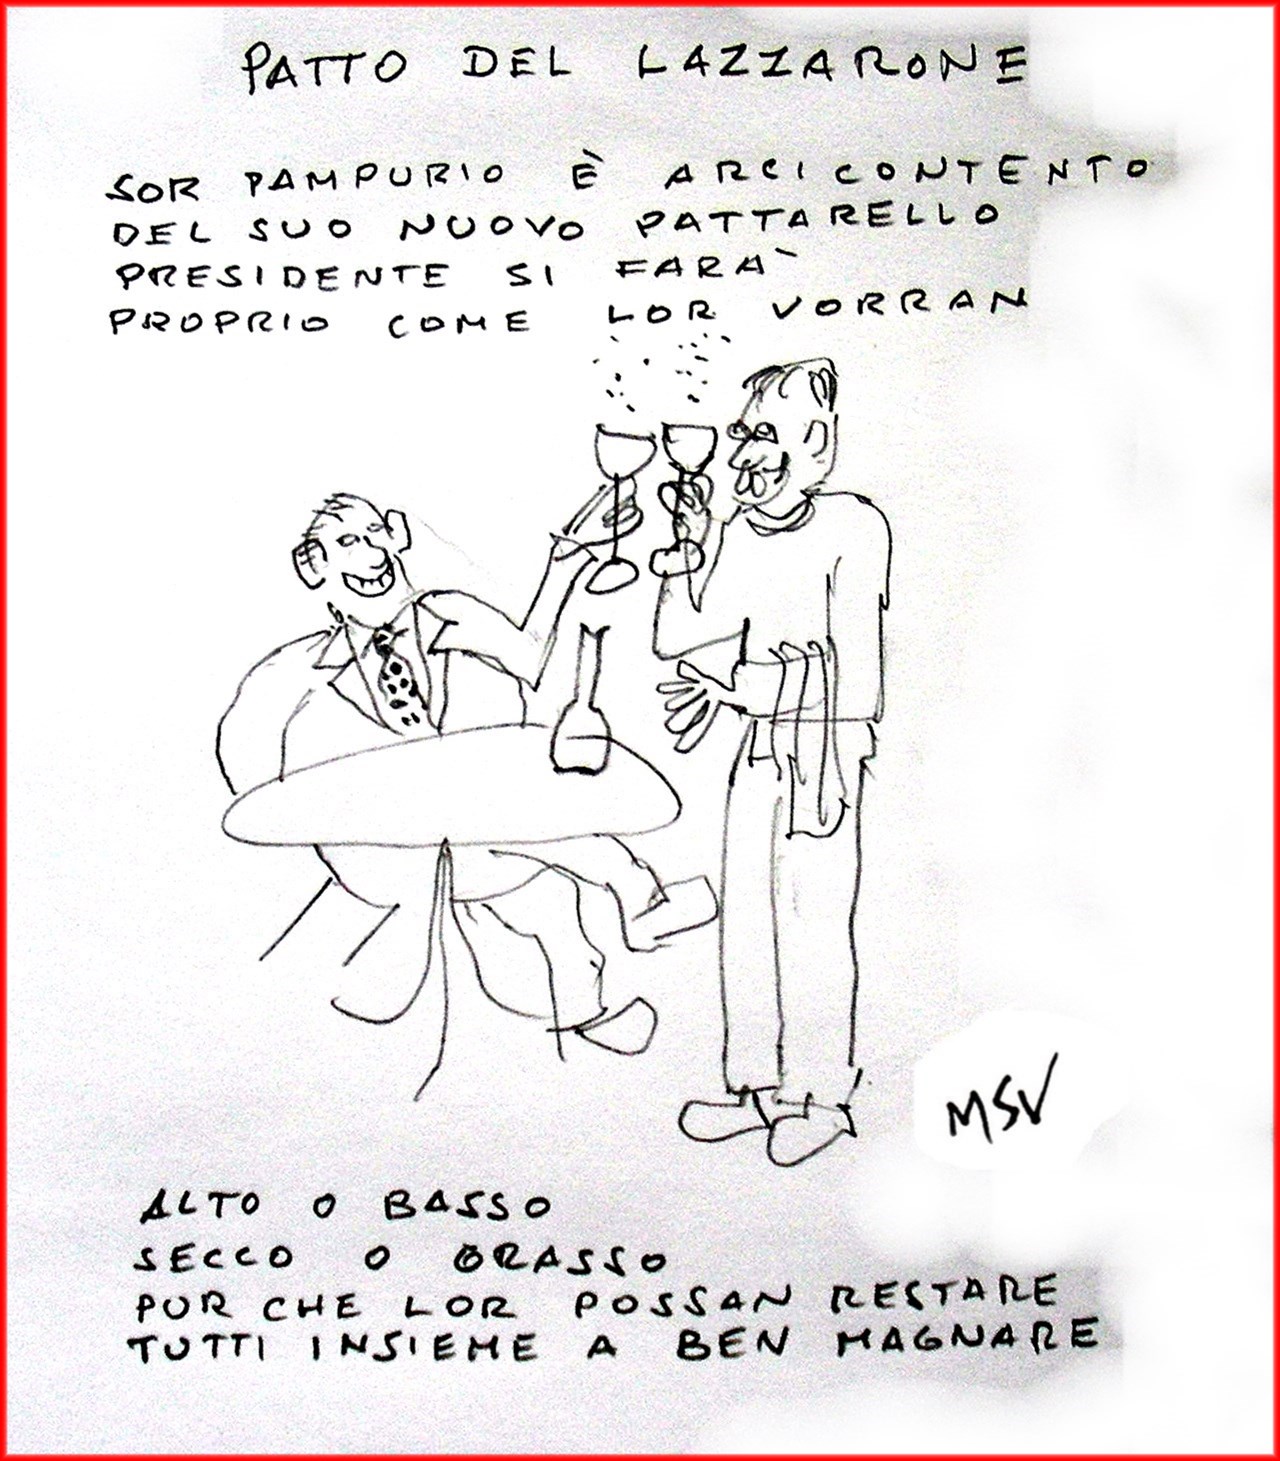 PATTO DEL LAZZARONE
SOR PAMPURIO È ARCICONTENTO
DEL SUO NUOVO PATTARELLO
PRESIDENTE SI FARA`
PROPRIO COME LOR VORRAN
MSV
ALTO O BASSO
SECCO O GRASSO
PUR CHE LOR POSSAN RESTARE
TUTTI INSIEME A BEN MAGNARE